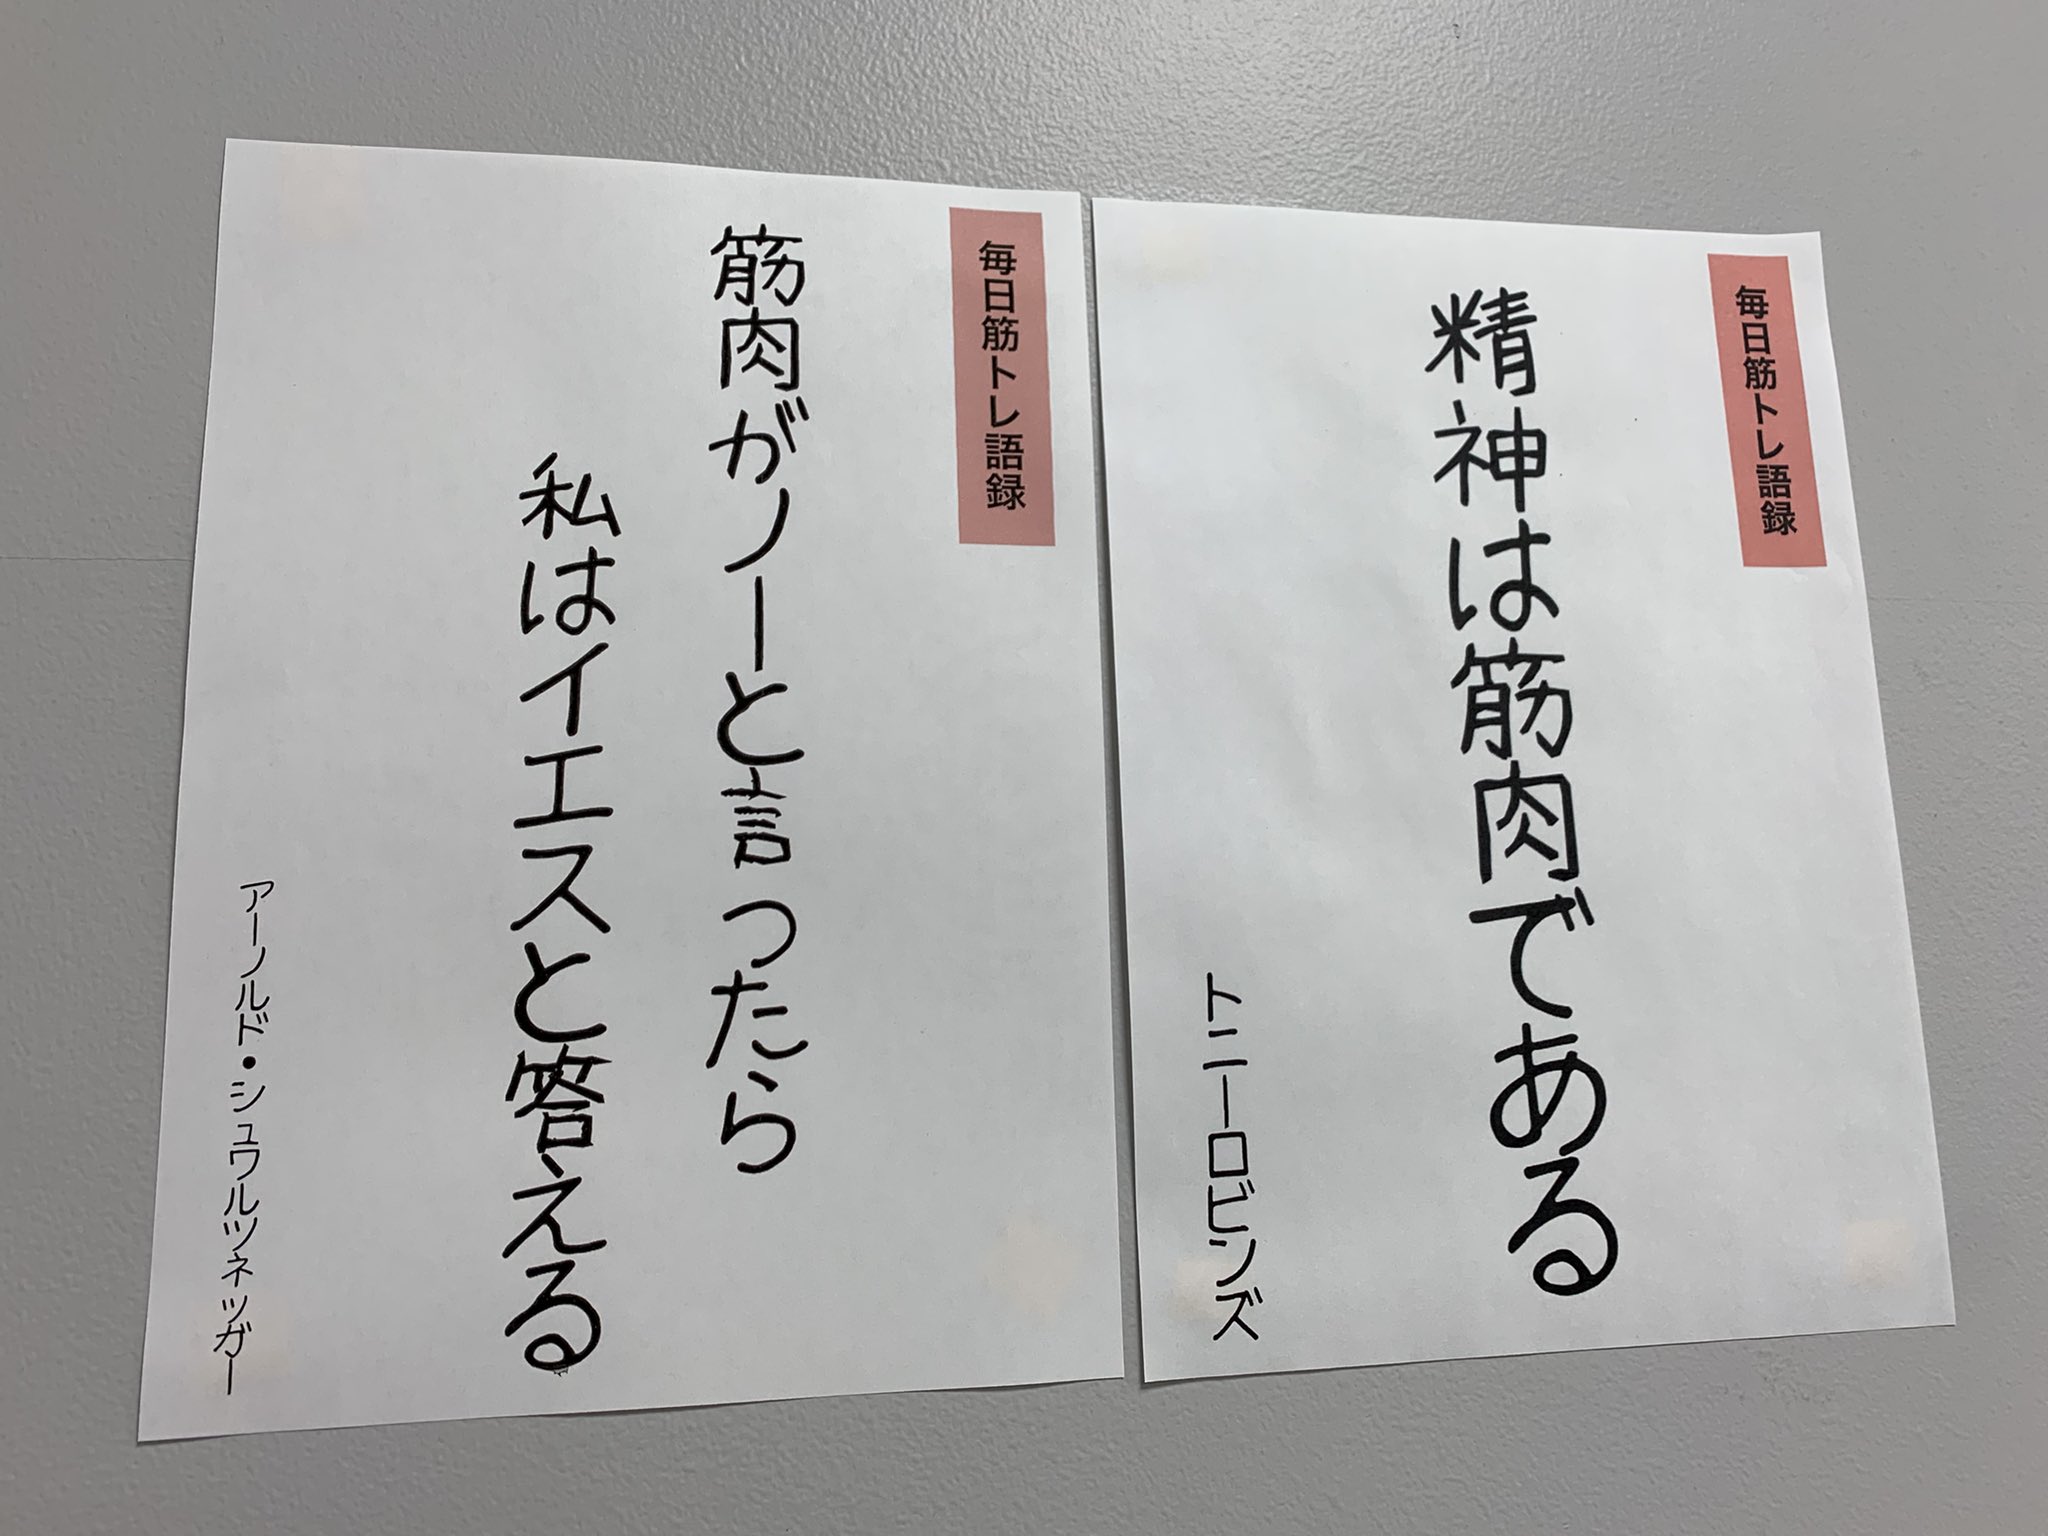 毎日筋トレ語録
精神は筋肉である
トニーロビンズ
毎日筋トレ語録
筋肉がノーと言ったら
私はイエスと答える
アーノルド・シュワルツネッガー